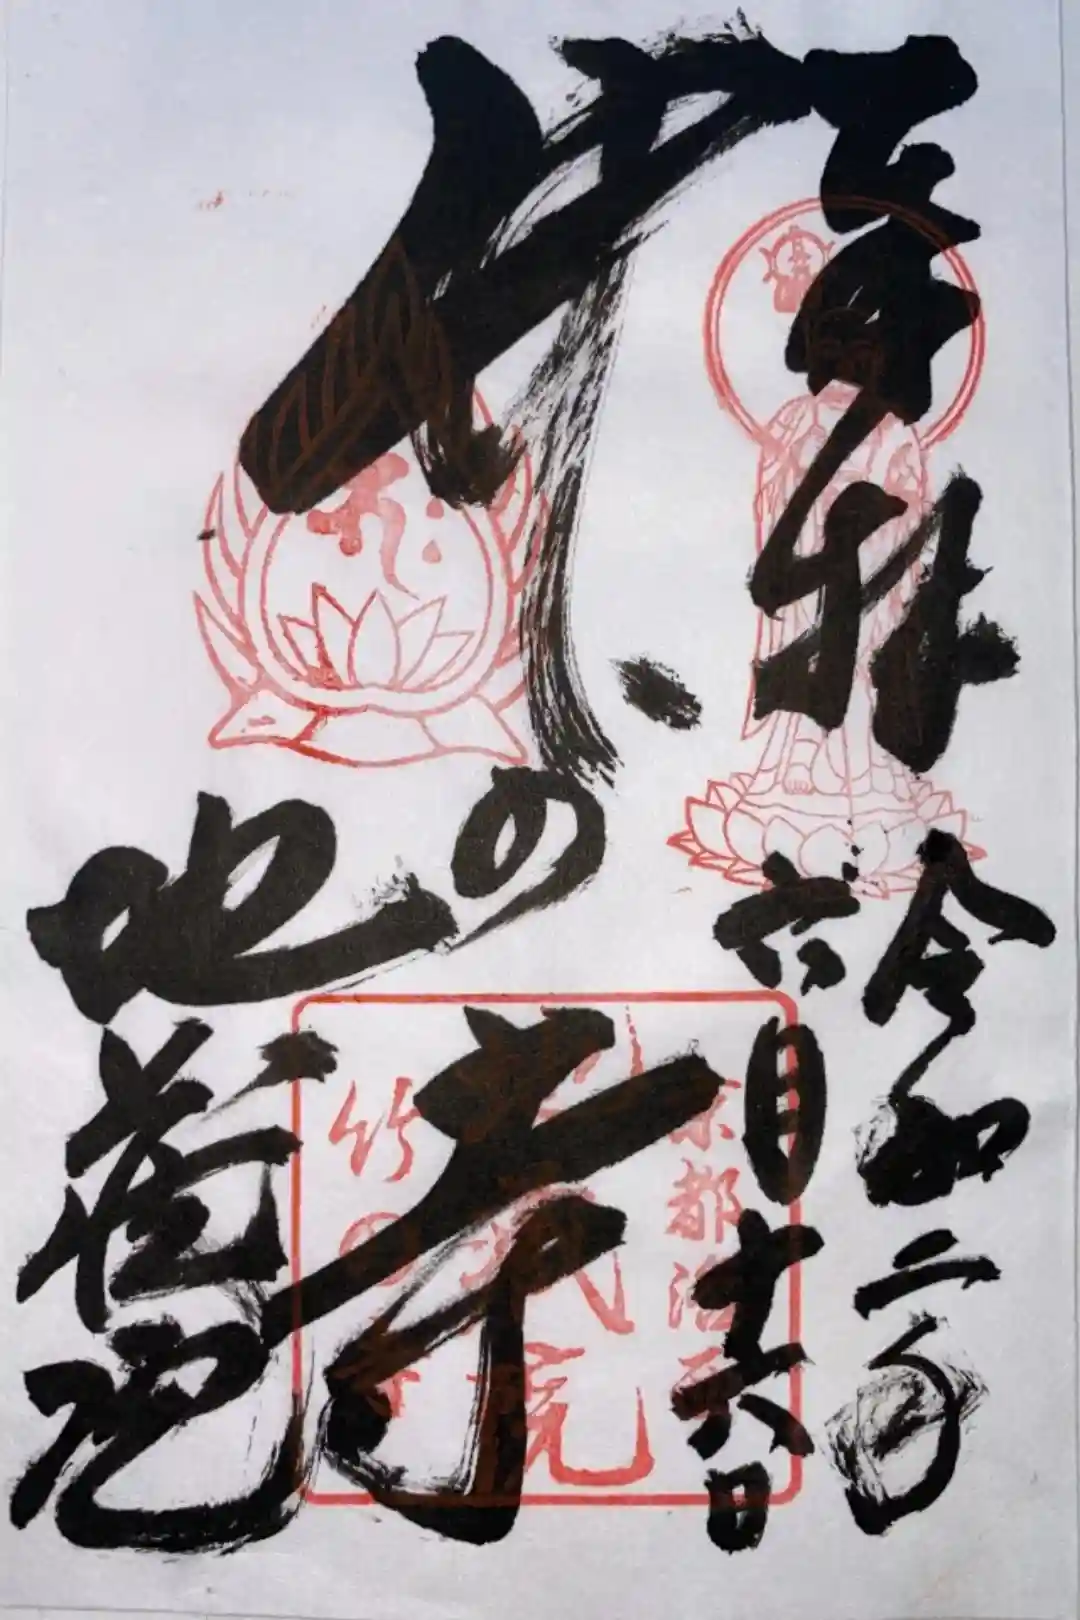 奉拝
令和二年
六月十六日
竹の寺
地蔵院
京都洛西
竹の寺